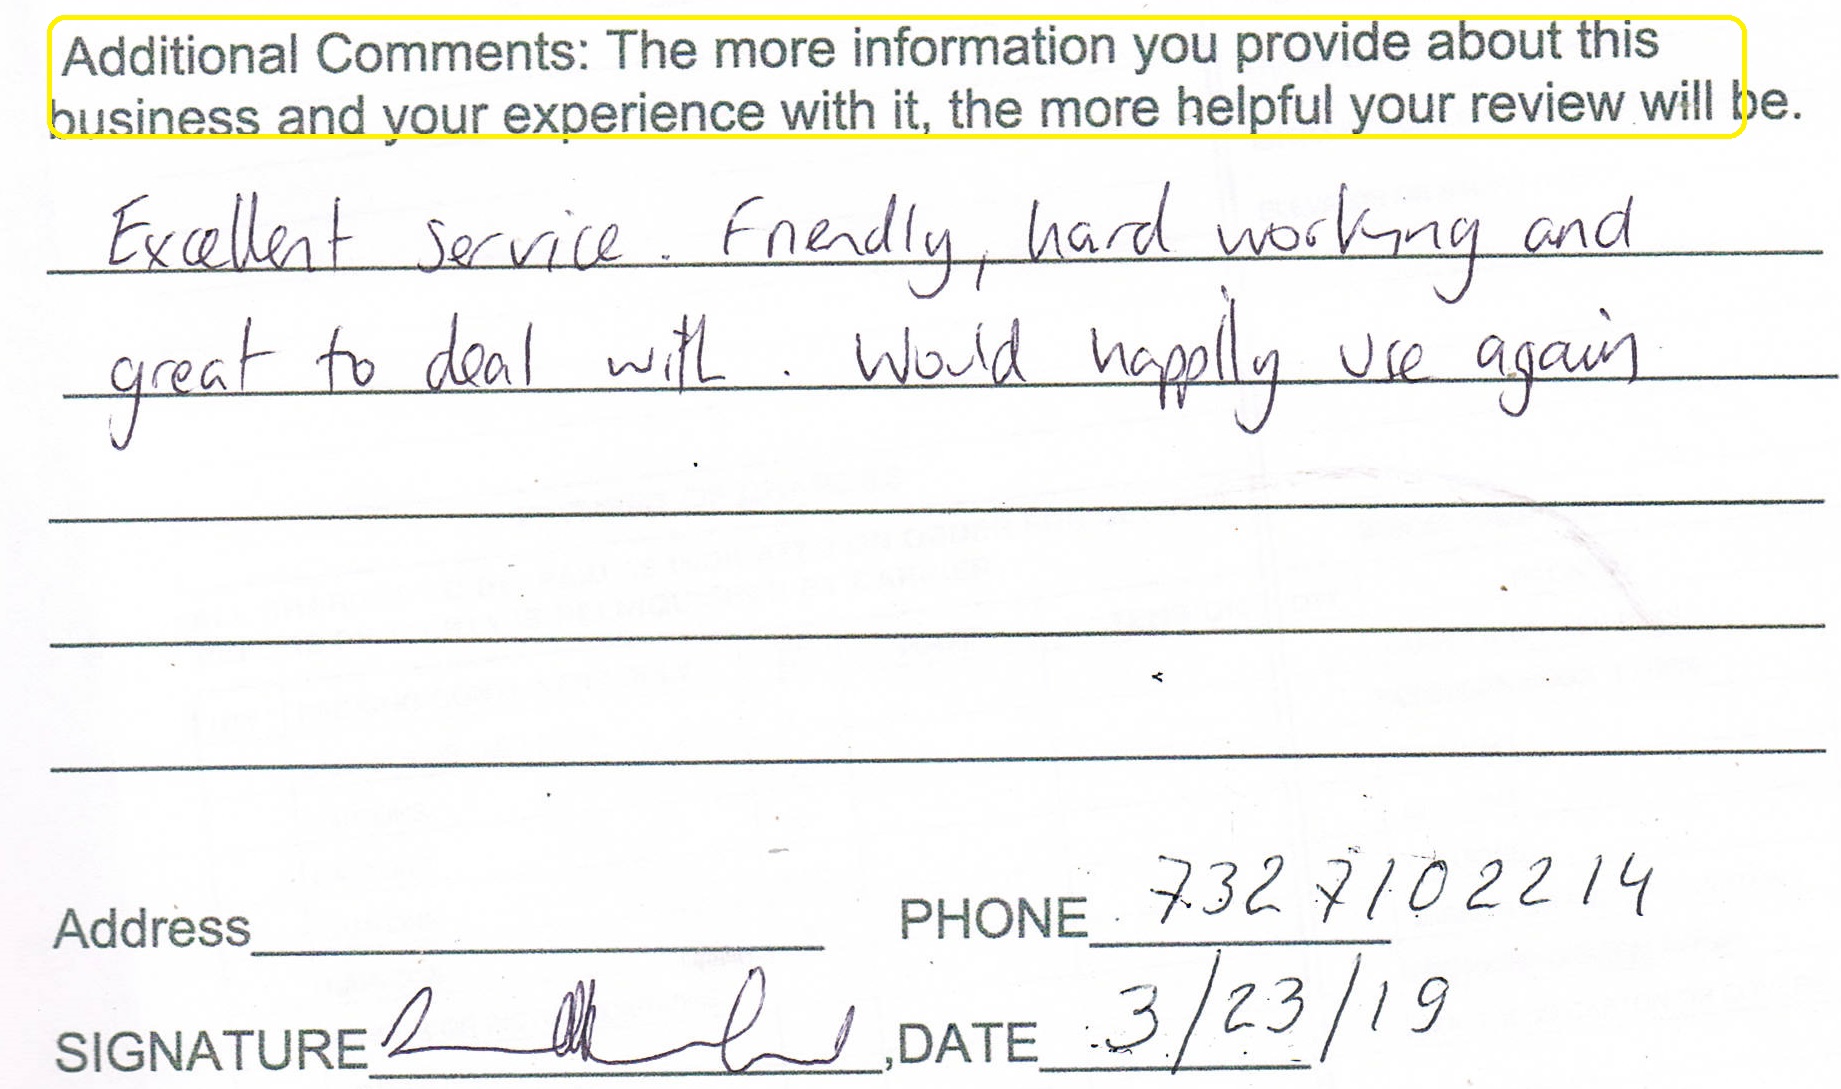 Additional Comments: The more information you provide about this
business and your experience with it, the more helpful your review will be.
Excellent service. Friendly, hard working and
great to deal with. Would happily use again
Address PHONE 732 710 2214
SIGNATURE , DATE 3/23/19